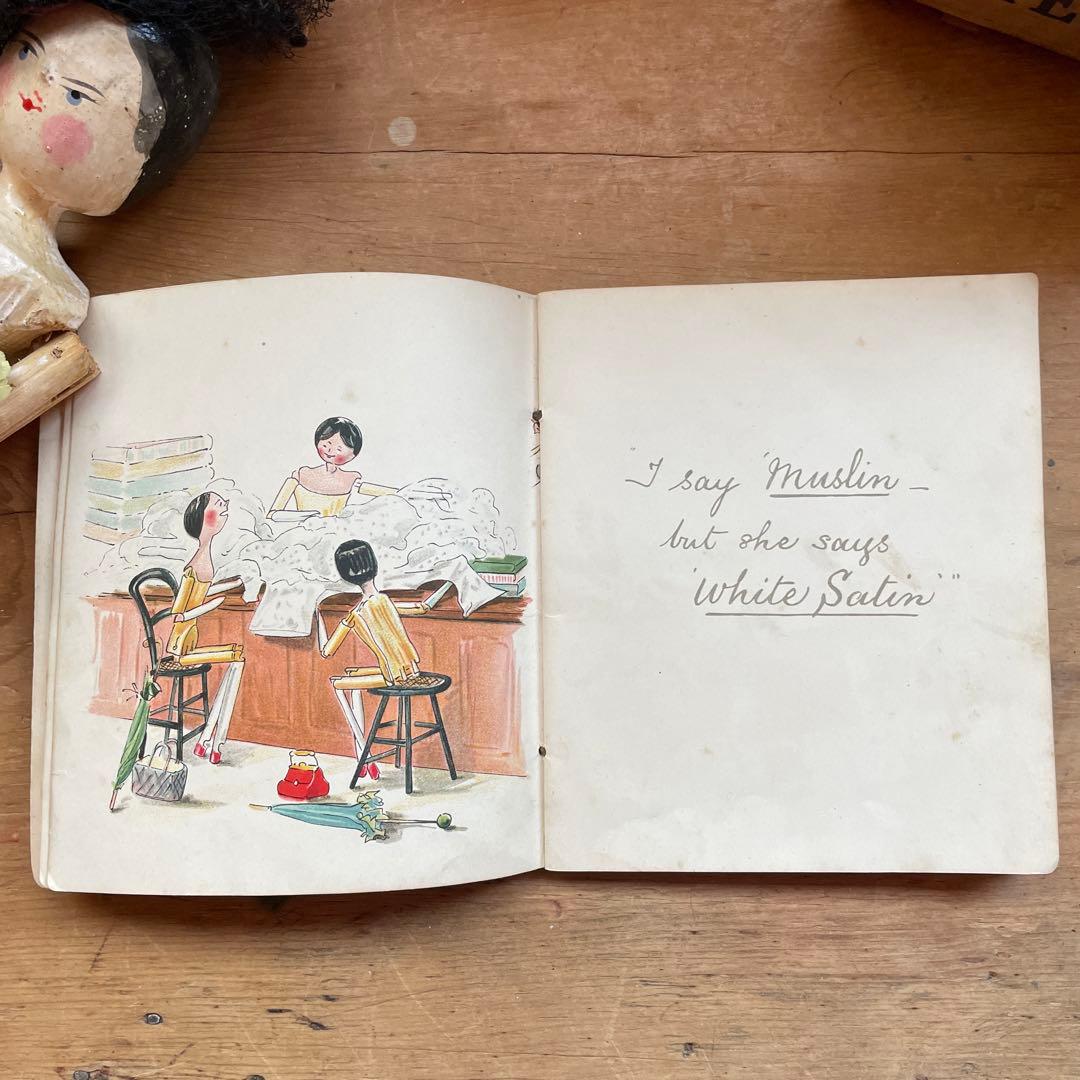 "I say 'Muslin –
but she says
'White Satin'"